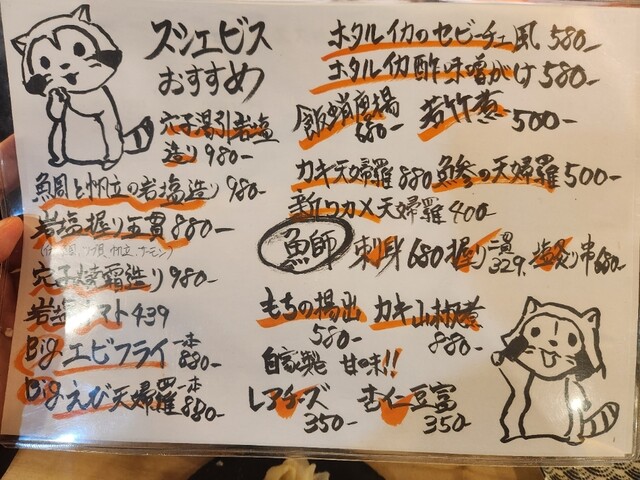 スシエビス
おすすめ
穴子湯引岩塩
造り 980-
魚周と帆立の岩塩造り 980
岩塩握り五貫 880-
穴子焼霜造り 980-
岩塩トマト 439
Bigエビフライ 一本 880-
Bigえび天婦羅 一本 880-
ホタルイカのセビーチェ風 580-
ホタルイカ酢味噌がけ 580-
飯蛸 680-
若竹煮 500-
カキ天婦羅 880
鯵の天婦羅 500-
新ワカメ天婦羅 400-
魚師 刺身 680 握り 二貫 329. 塩炙り串 680-
もちの揚出
580-
カキ山椒煮
880-
自家製 甘味!!
レアチーズ
350-
杏仁豆富
350-